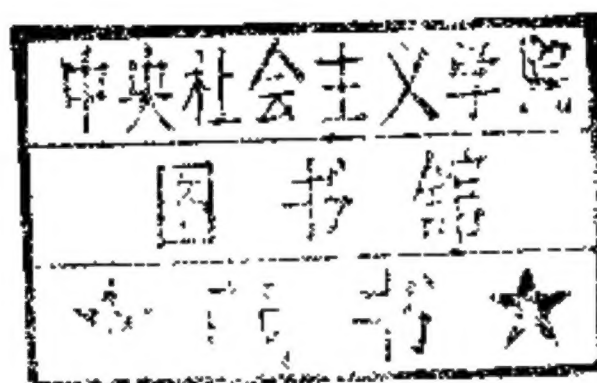 中央社会主义学院
图书馆